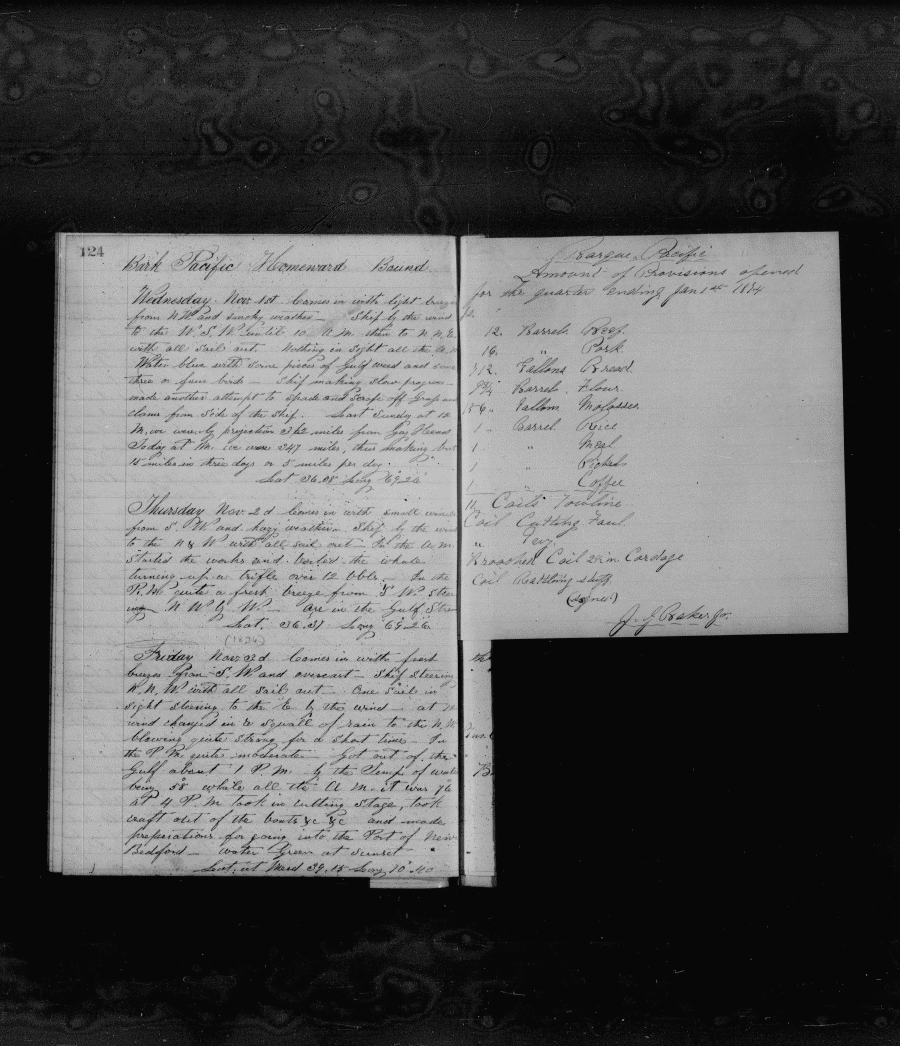 124
Bark Pacific Homeward Bound
Wednesday Nov. 1st Comes in with light breeze
from NW and smoky weather — Ship by the wind
to the W.S.W. until 10 A.M. then to N.N.E.
with all sail out. Nothing in sight all the A.M
Water blue with some pieces of Gulf weed and some
three or four birds — Ship making slow progress —
made another attempt to spade and scrape off Grass and
clams from side of the ship. Last Sunday at 12
M. we were by projection 362 miles from Gay Head
Today at M. we were 347 miles, thus making but
15 miles in three days or 5 miles per day.
Lat 36.08 Long 69.26
Thursday Nov. 2d Comes in with small winds
from S. W and hazy weather. Ship by the wind
to the W with all sail out — In the A.M.
started the works and boiled the whale
turning up a trifle over 12 bbls. — In the
P.M. quite a fresh breeze from S.W. Steer
ing N W by W. — are in the Gulf Stre
Lat. 36.31 Long 69.26
Friday Nov. 3d Comes in with fresh
breezes from S.W and overcast — Ship steering
N.N.W with all sail out — One sail in
sight steering to the E by the wind — at M
wind changed in a squall of rain to the N.W
blowing quite strong for a short time — In
the P.M. quite moderate — Got out of the
Gulf about 1 P.M. by the Temp of water
being 58° while all the A.M. it was 76
at 4 P.M took in cutting stage, took
craft out of the boats &c &c and made
preparations for going into the Port of New
Bedford — water Green at sunset
Lat. at Merd 39.15 Long 70°.40
Barque Pacific
Amount of Provisions opened
for the quarter ending Jan 1st 1884
12. Barrels Beef.
16. " Pork.
Gallons Bread.
Barrels Flour.
Gallons Molasses
1 " Barrel Rice
1 " Meal
1 " Pickels
1 " Coffee
Coils Towline.
Coil Cutting Faul.
"
Coil in. Cordage
Coil Ratling stuff
(signed)
J. G Baker Jr.